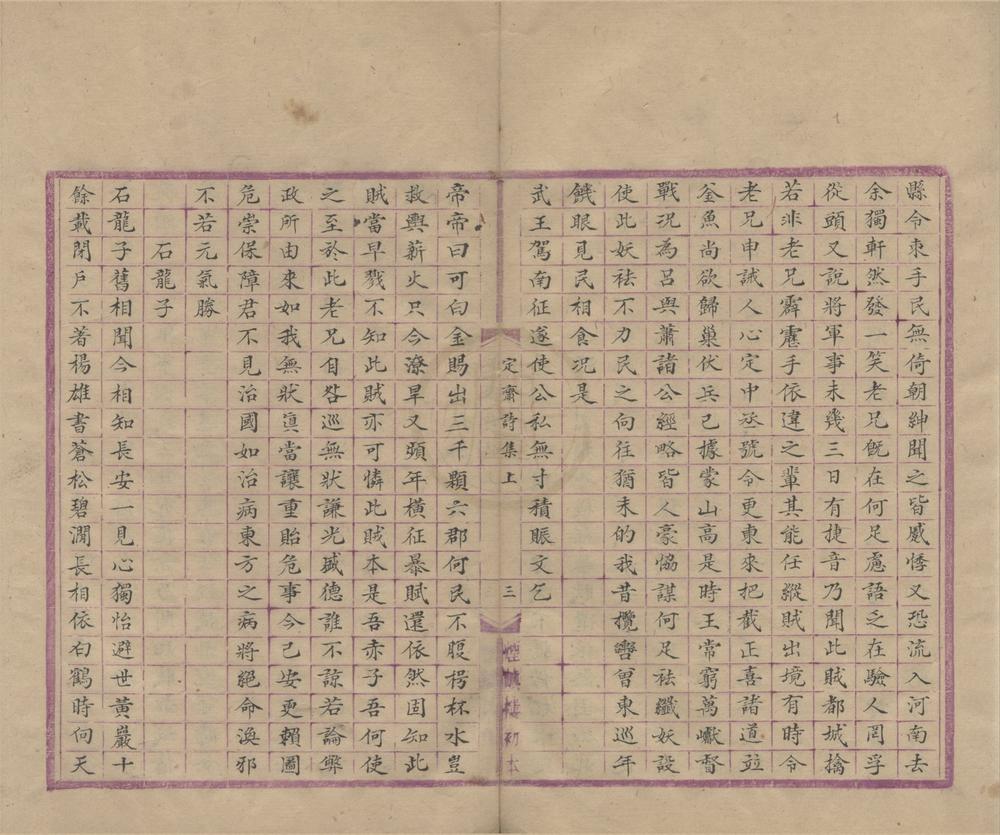 縣令束手民無倚朝紳聞之皆感悸又恐流入河南去
余獨軒然發一笑老兄旣在何足慮語之在驗人罔孚
從頭又說將軍事未幾三日有捷音乃聞此賊都城擒
若非老兄霹靂手依違之輩其能任縱賊出境有時令
老兄申誠人心定中丞號令更東來把截正喜諸道竝
釜魚尚欲歸巢伏兵已據蒙山高是時王常窮萬巘督
戰況為呂與蕭諸公經略皆人豪恊謀何足祛纖妖設
使此妖祛不力民之向往猶未的我昔攬轡曾東巡年
饑眼見民相食況是
武王駕南征遂使公私無寸積賑文乞
定齋詩集上
三
煙嶼樓初本
帝帝曰可白金賜出三千顆六郡何民不腹枵杯水豈
救輿薪火只今潦旱又頻年橫征暴賦還依然固知此
賊當早戮不知此賊亦可憐此賊本是吾赤子吾何使
之至於此老兄自咎巡無狀謙光盛德誰不諒若論樂
政所由來如我無狀寘當讓重貽危事今已安更賴圖
危崇保障君不見治國如治病東方之病將絕命渙邪
不若元氣勝
石龍子
石龍子舊相聞今相知長安一見心獨怡避世黃巖十
餘載閉戶不著楊雄書蒼松碧澗長相依白鶴時向天